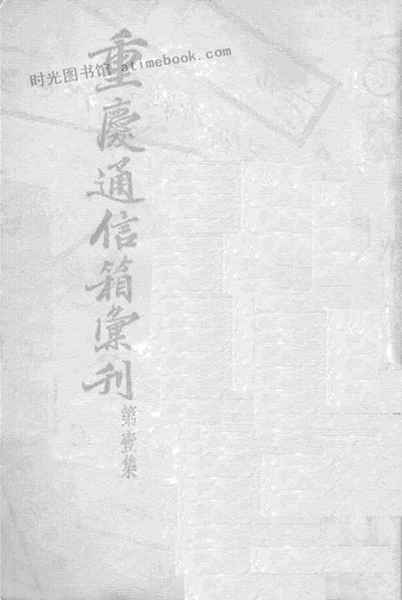 时光图书馆 atimebook.com
重慶通信箱彙刊
第壹集